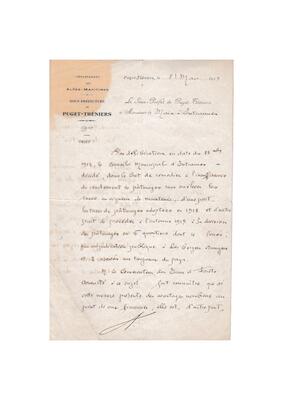 DÉPARTEMENT
DES
ALPES-MARITIMES
SOUS-PRÉFECTURE
DE
PUGET-THÉNIERS
OBJET
Puget-Théniers, le 31 Mars 1919
Le Sous-Préfet de Puget-Théniers
à Monsieur le Maire d'Entraunes
Par délibération en date du
1918, le Conseil Municipal d'Entraunes a
décidé, dans le but de remédier à l'insuffisance
de rendement des pâturages
en vigueur, le maintien, d'une part,
la taxe de pâturages adoptée en 1918 et d'autre
part de procéder à l'automne 1919 à la division
des pâturages en 6 quartiers dont 4 loués
par adjudication publique à des bergers étrangers
et 2 réservés aux troupeaux du pays.
M. le Conservateur des Eaux et Forêts
consulté à ce sujet fait connaître que si
cette mesure présente des avantages nombreux au
point de vue financier, elle est, d'autre part,